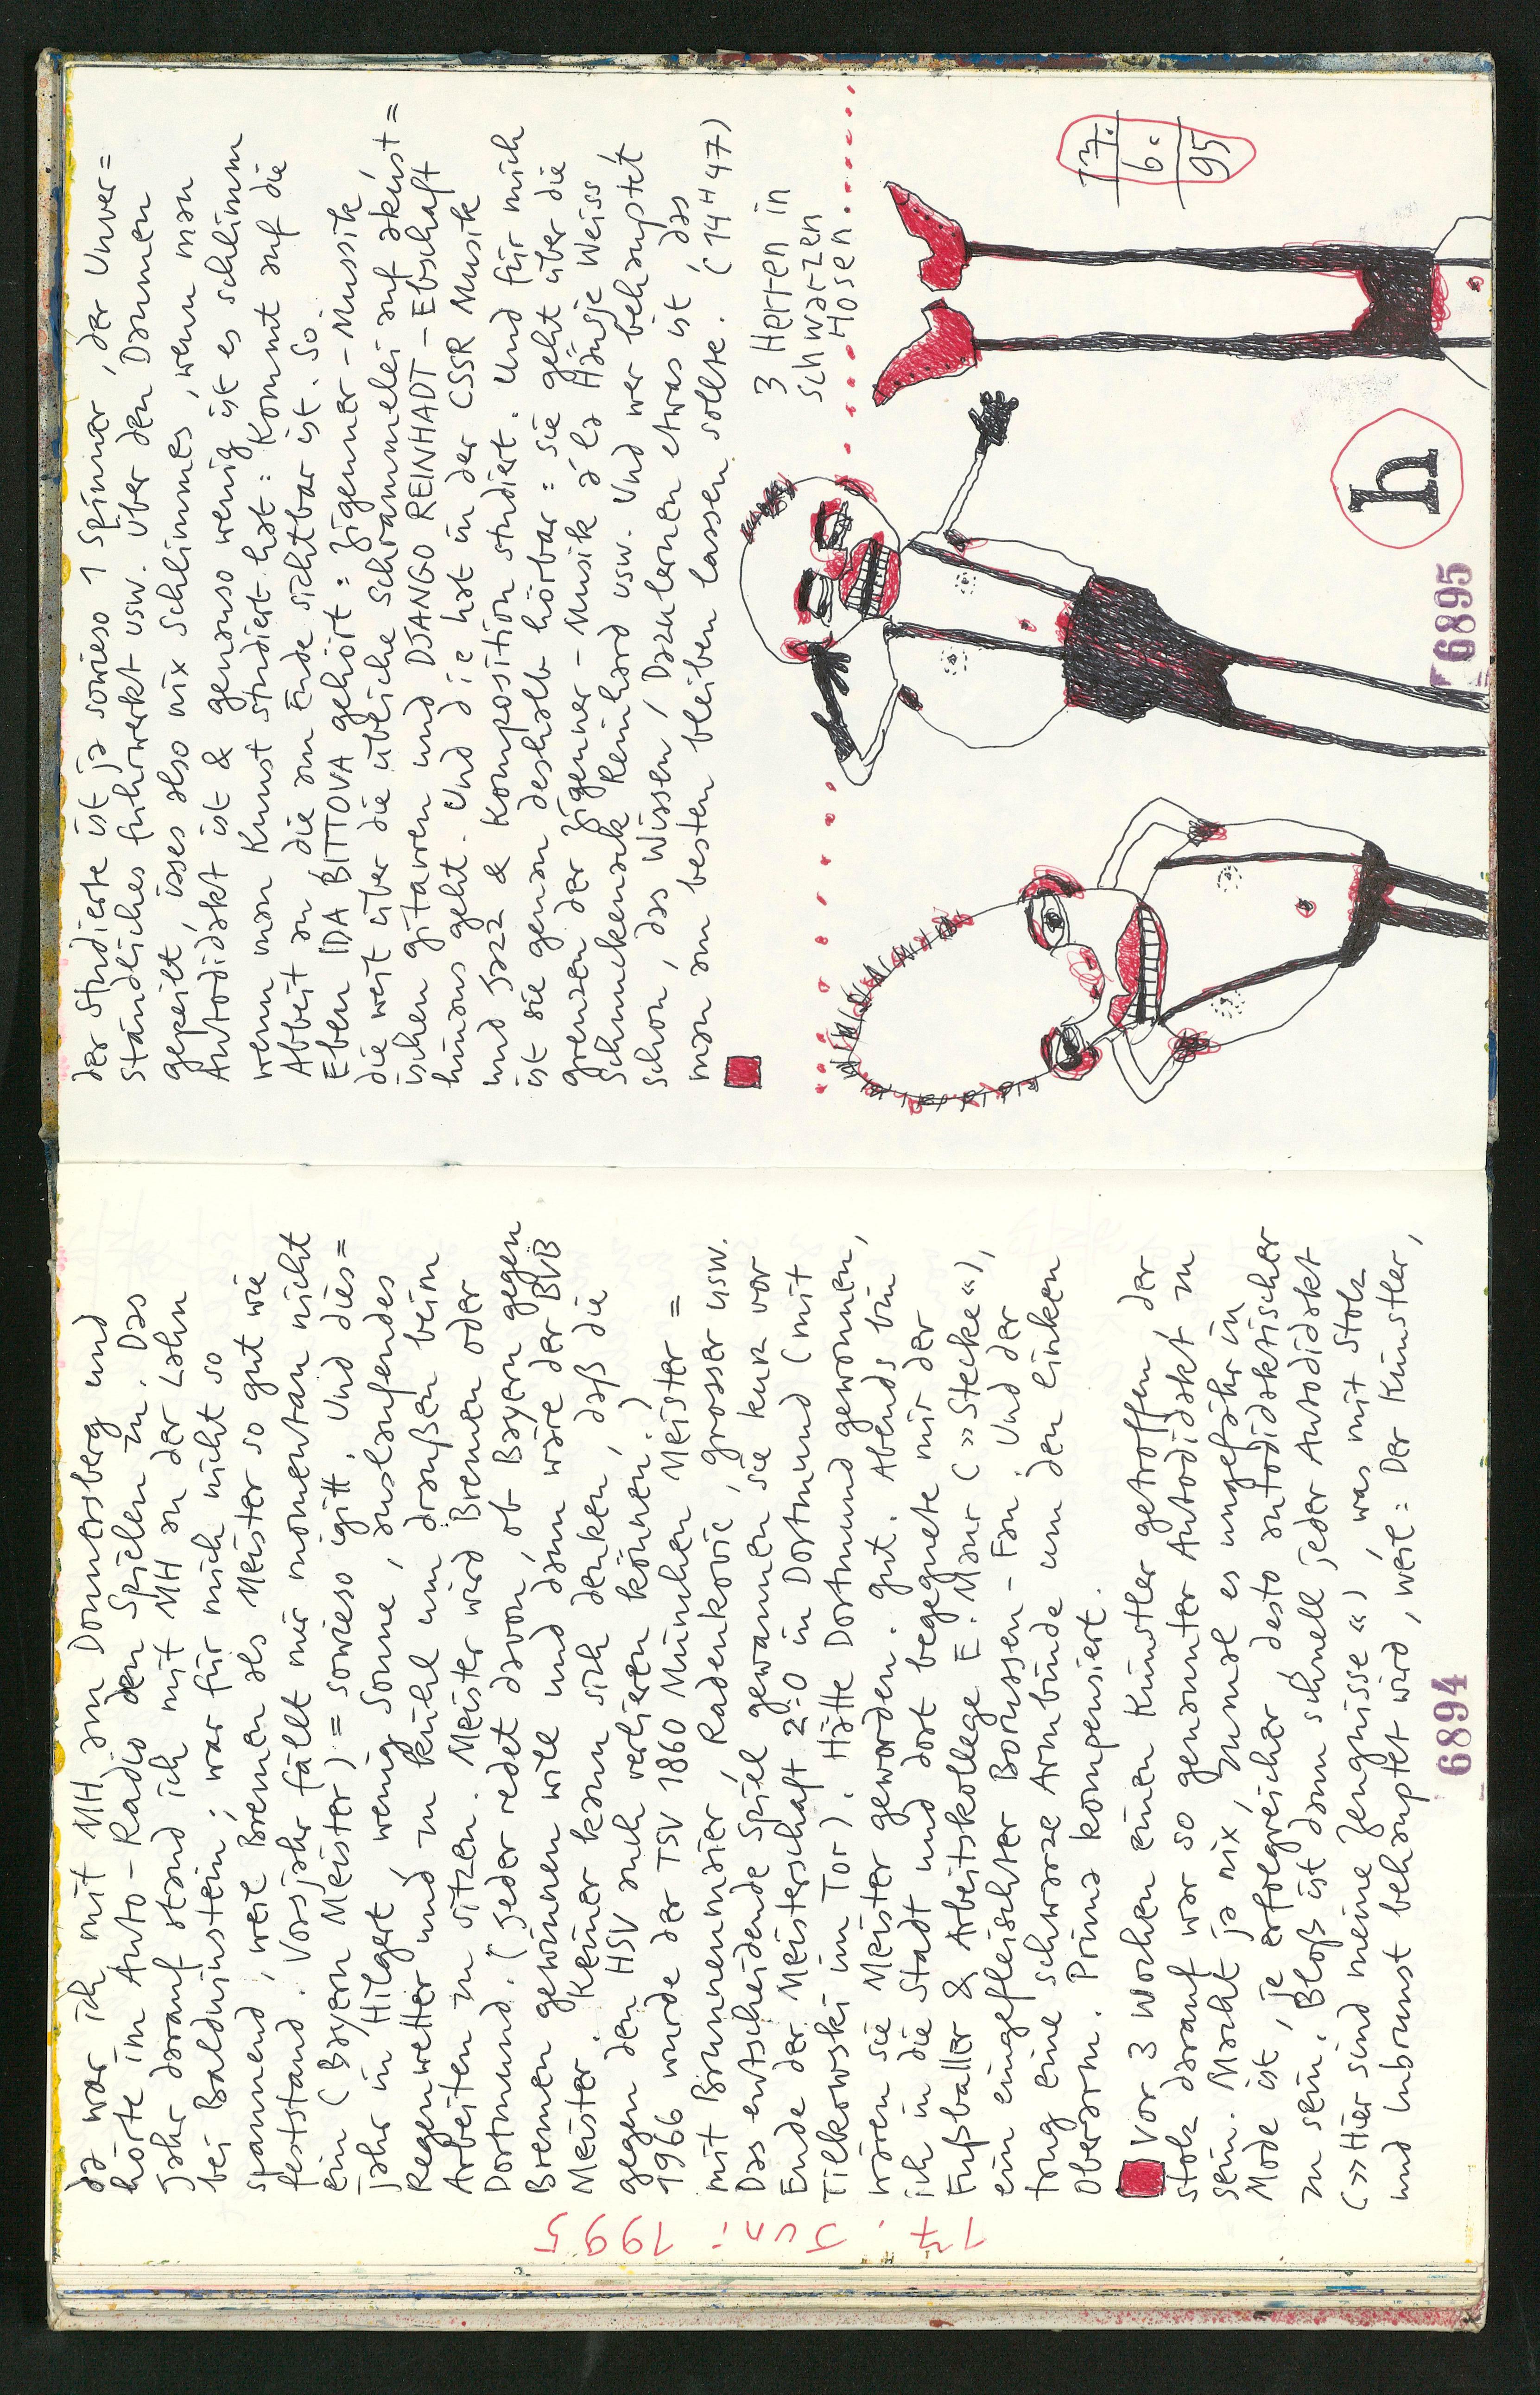 17. Juni 1995
da war ich mit MH am Donnersberg und
hörte im Auto-Radio den Spielen zu. Das
Jahr darauf stand ich mit MH an der Lahn
bei Balduinstein; war für mich nicht so
spannend, weil Bremen als Meister so gut wie
feststand. Vorsjahr fällt mir momentan nicht
ein (Bayern Meister) = sowieso igitt. Und dies=
jahr in Hilgert, wenig Sonne, auslaufendes
Regenwetter und zu kühl um draußen beim
Arbeiten zu sitzen. Meister wird Bremen oder
Dortmund. (Jeder redet davon, ob Bayern gegen
Bremen gewinnen will und dann wäre der BVB
Meister. Keiner kann sich denken, daß die
gegen den HSV auch verlieren können.)
1966 wurde der TSV 1860 München Meister =
mit Brunnenmaier, Radenkovic, Grosser usw.
Das entscheidende Spiel gewannen sie kurz vor
Ende der Meisterschaft 2:0 in Dortmund (mit
Tilkowski im Tor). Hätte Dortmund gewonnen,
wären sie Meister geworden. Gut. Abends bin
ich in die Stadt und dort begegnete mir der
Fußballer & Arbeitskollege E. Maur (»Stecke«),
ein eingefleischter Borussen-Fan. Und der
trug eine schwarze Armbinde um den linken
Oberarm. Prima kompensiert.
Vor 3 Wochen einen Künstler getroffen, der
stolz darauf war so genannter Autodidakt zu
sein. Macht ja nix, zumal es ungefähr in
Mode ist, je erfolgreicher, desto autodidaktischer
zu sein. Bloß ist dann schnell jeder Autodidakt
(»Hier sind meine Zeugnisse«), was mit Stolz
und Inbrunst behauptet wird, weil: Der Künstler,
6894
der studierte ist ja sowieso 1 Spinner, der Unver=
ständliches fuhrwerkt usw. Über den Daumen
gepeilt, isses also nix Schlimmes, wenn man
Autodidakt ist & genauso wenig ist es schlimm
wenn man Kunst studiert hat: Kommt auf die
Arbeit an, die am Ende sichtbar ist. So.
Eben IDA BITTOVA gehört: Zigeuner-Mussik,
die weit über die übliche Schrammelei auf akust=
ischen Gitarren und DJANGO REINHADT-Ebschaft
hinaus geht. Und die hat in der CSSR Musik
und Jazz & Komposition studiert. Und für mich
ist sie genau deshalb hörbar = sie geht über die
Grenzen der Zigeuner-Musik á la Häns'je Weiss
Schnuckenack Reinhard usw. Und wer behauptet
schon, das Wissen, Dazulernen etwas ist, das
man am besten bleiben lassen sollte. (14 H 47)
3 Herren in
schwarzen
Hosen
17.
6.
95
h
6895